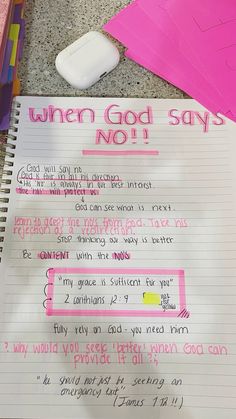 when God says
NO!!
God will say no
God is fair in all his direction.
His 'no' is always in our best interest.
the 'nos' will protect us
↓
God can see what is next.
learn to accept the no's from God. Take his
rejection as a redirection.
STOP thinking our way is better
Be CONTENT with the NO'S
"my grace is sufficent for you"
2 corinthians 12:9
not
yellow
fully rely on God - you need him
? why would you seek 'better' when God can
provide it all ?;
"he should not just be seeking an
emergency exit"
(James 1 !!!)